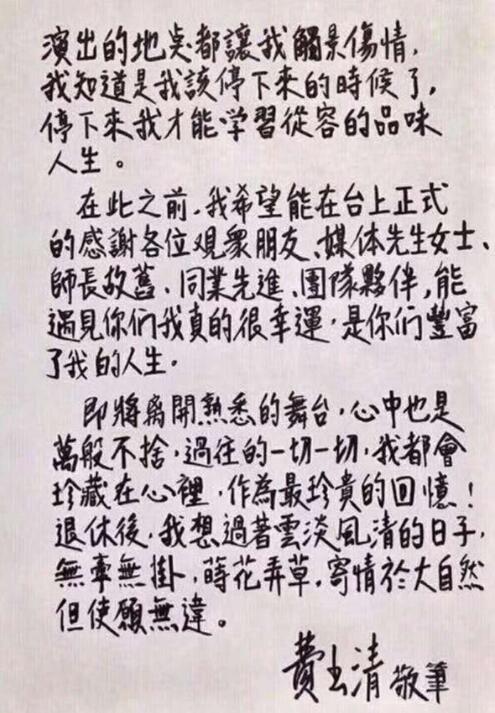 演出的地点都讓我觸景傷情,
我知道是我該停下來的時候了,
停下來我才能学習從容的品味
人生。
在此之前,我希望能在台上正式
的感謝各位观衆朋友、媒体先生女士、
師長故舊、同業先進、團隊夥伴,能
遇見你们我真的很幸運,是你们豐富
了我的人生.
即將離開熟悉的舞台,心中也是
萬般不捨,過往的一切一切,我都會
珍藏在心裡,作為最珍貴的回憶!
退休後,我想過著雲淡風清的日子,
無牽無掛,蒔花弄草,寄情於大自然
但使願無違。
費玉清 敬筆